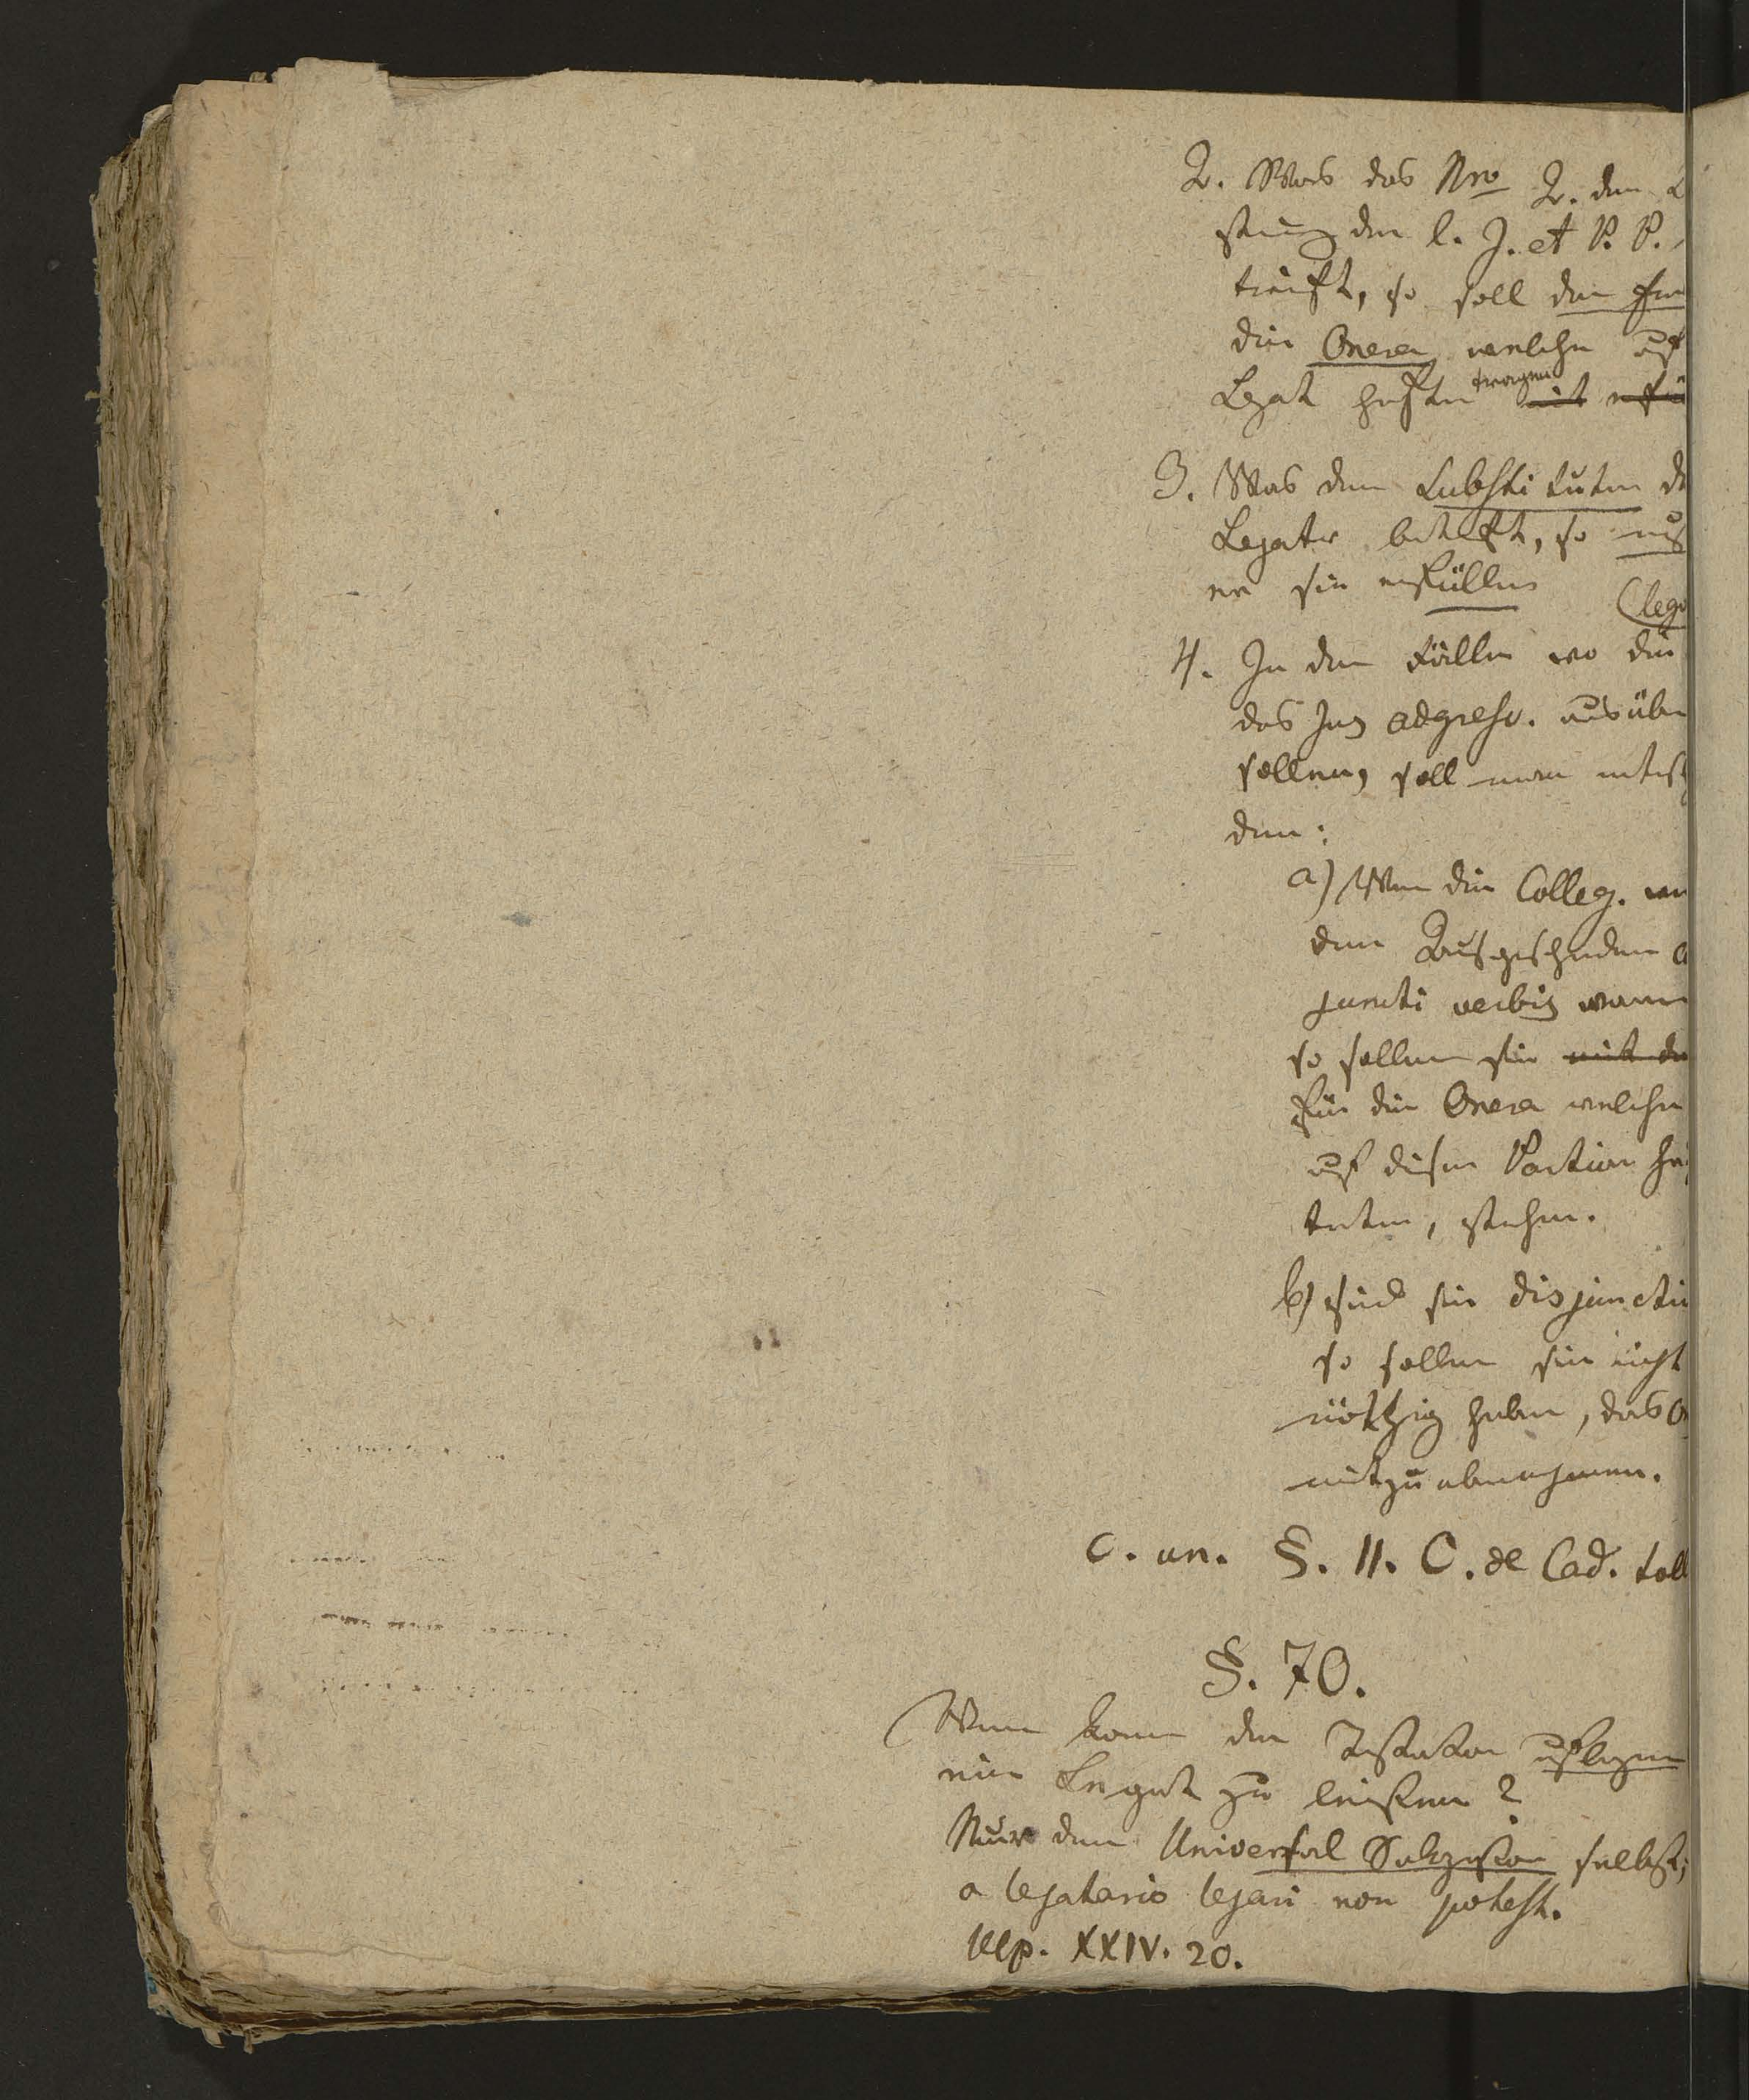 2. Was das Nro 2. der L
stung der l. J. et P. P.
trifft, so soll der
die Onera welche auf
Legat haften tragen mit erfü
3. Was den Substituten de
Legatar betrifft, so muß
er sie erfüllen (lega
4. In den Fällen wo die
das Jus adgresc. ausüben
sollen, soll man untersch
den:
a) Wenn die Colleg. mit
dem Ausgeschiedenen
juncti verbis waren
so sollen sie mit de
für die Onera welche
auf dieser Portion haf
teten, stehen.
b) sind sie disjuncti
so sollen sie nicht
nöthig haben, das
mitzuübernehmen.
C. un. §. 11. C. de Cad. toll
§. 70.
Wem kann der Testator auflegen
ein Legat zu leisten?
Nur dem Universal Sukzessor selbst;
a legatario legari non potest.
Ulp. XXIV. 20.